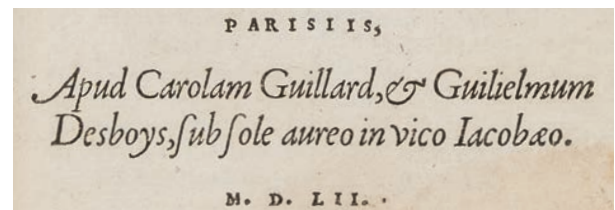 PARISIIS,
Apud Carolam Guillard, & Guilielmum
Desboys, ſub ſole aureo in vico Iacobæo.
M. D. LII.